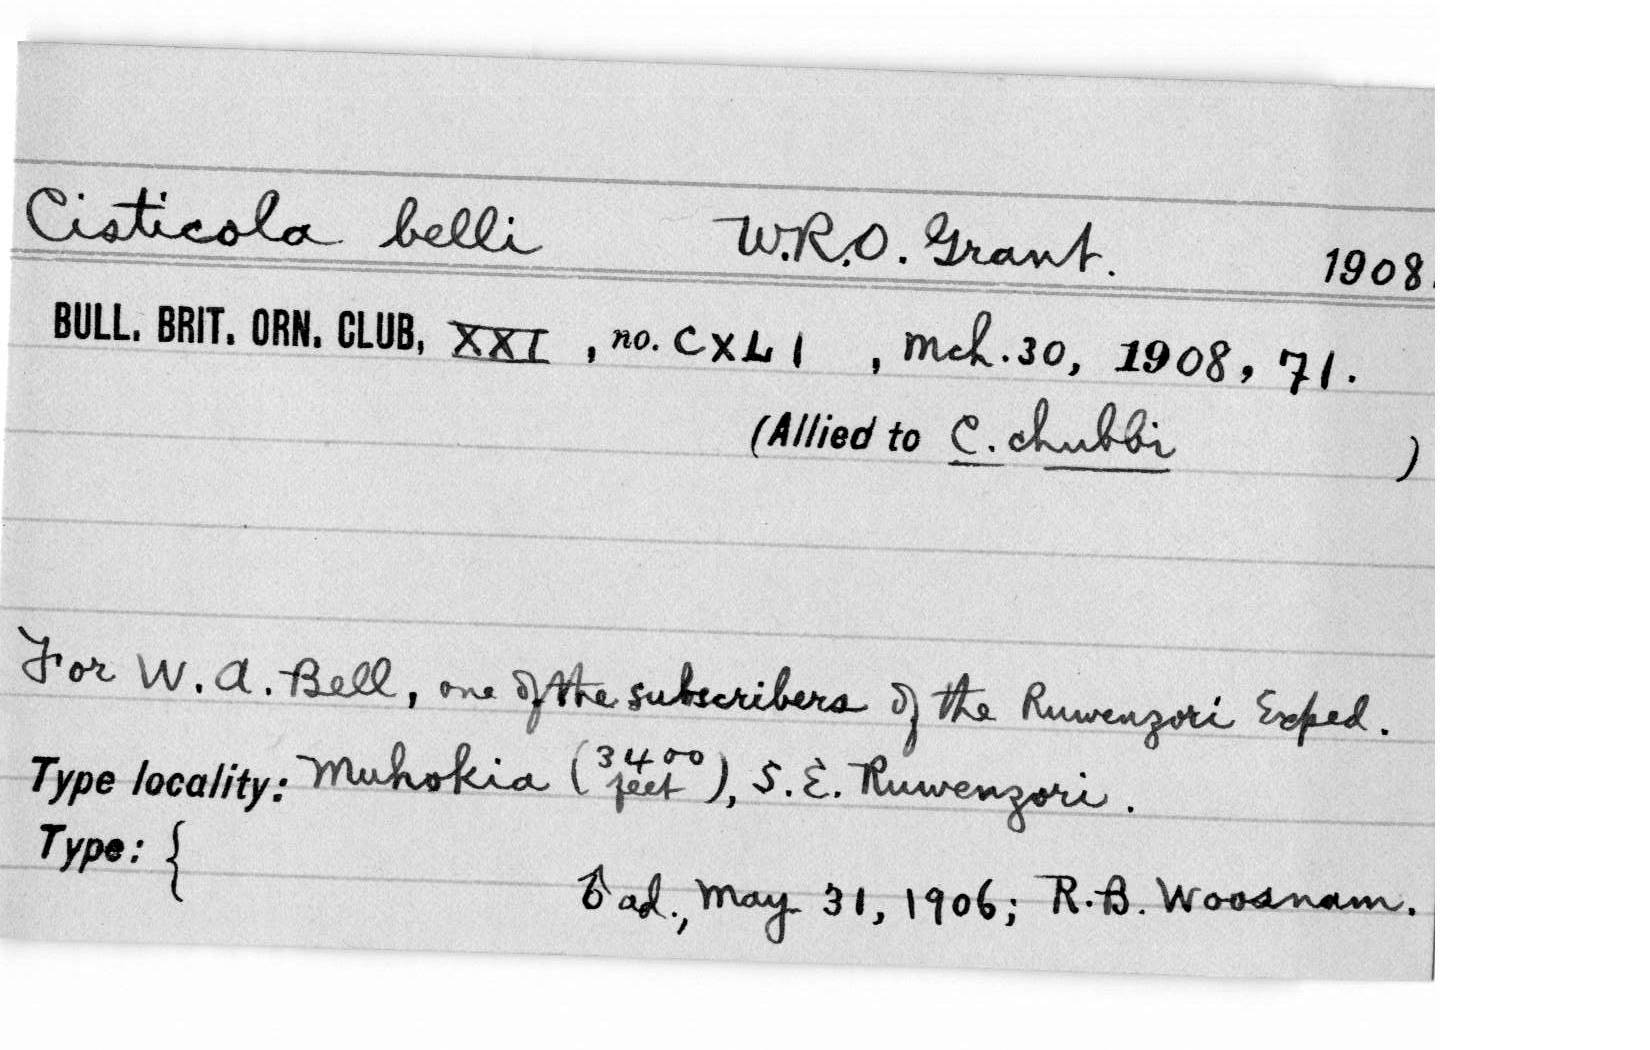 Cisticola belli W.R.O. Grant. 1908.
BULL. BRIT. ORN. CLUB, XXI, no. CXLI, Mch. 30, 1908, 71.
(Allied to C. chubbi)
For W. A. Bell, one of the subscribers of the Ruwenzori Exped.
Type locality: Muhokia (3400 feet), S. E. Ruwenzori.
Type: {
♂ ad., May 31, 1906; R. B. Woosnam.